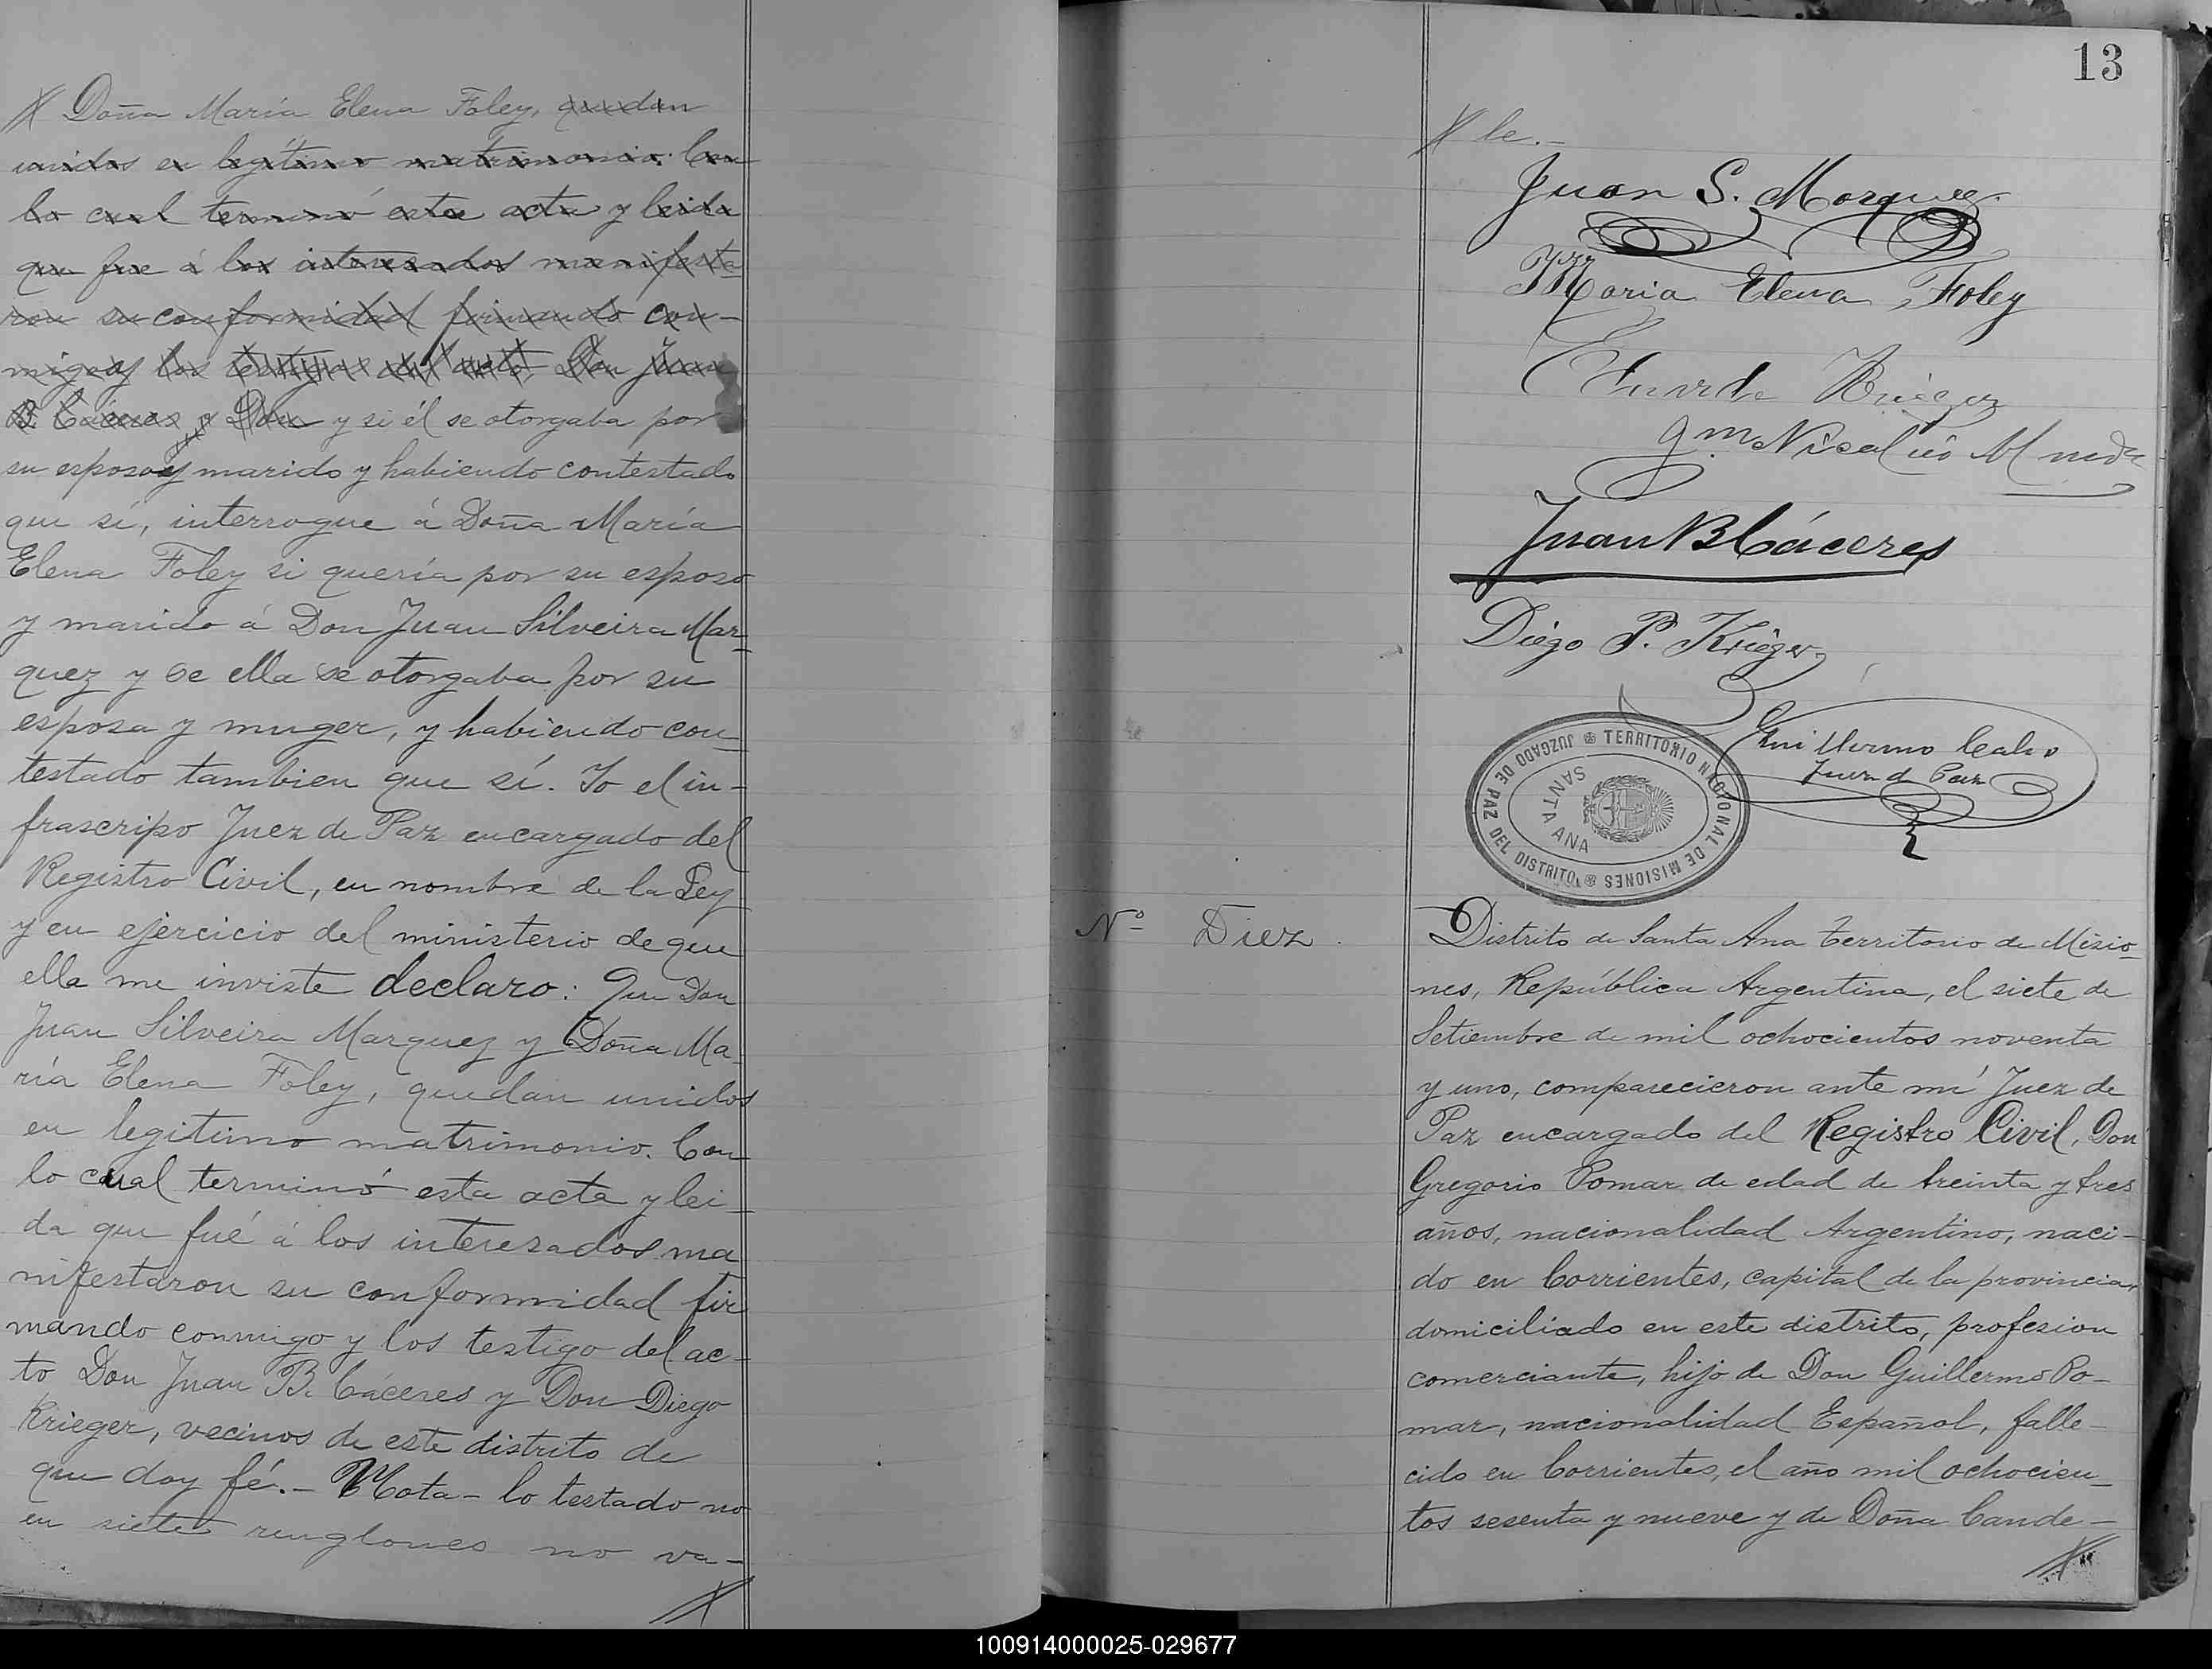 Doña María Elena Foley, quedan
unidos en legítimo matrimonio. Con
lo cual terminó esta acta y leida
que fue á los interesados manifesta
ron su conformidad firmando con-
migo y los testigos del acto, Don Juan
B. Cáceres y Don y si él se otorgaba por
su esposo y marido y habiendo contestado
que sí, interrogue á Doña María
Elena Foley si quería por su esposo
y marido á Don Juan Silveira Mar-
quez y se ella se otorgaba por su
esposa y muger, y habiendo con-
testado tambien que sí. Yo el in-
frascripo Juez de Paz encargado del
Registro Civil, en nombre de la Ley
y en ejercicio del ministerio de que
ella me inviste declaro: Que Don
Juan Silveira Marquez y Doña Ma-
ría Elena Foley, quedan unidos
en legitimo matrimonio. Con
lo cual terminó esta acta y lei-
da que fué á los interesados ma
nifestaron su conformidad fir
mando conmigo y los testigo del ac-
to Don Juan B. Cáceres y Don Diego
Krieger, vecinos de este distrito de
que doy fé.- Nota- lo testado no
en siete renglones no va-
13
le.-
Juan S. Marquez
Maria Elena Foley
Juan B Cáceres
Diego P. Krieger
Guillermo Calvo
Juez de Paz
JUZGADO DE PAZ DEL DISTRITO TERRITORIO NACIONAL DE MISIONES
SANTA ANA
Nº Diez.
Distrito de Santa Ana territorio de Misio-
nes, República Argentina, el siete de
Setiembre de mil ochocientos noventa
y uno, comparecieron ante mí Juez de
Paz encargado del Registro Civil, Don
Gregorio Pomar de edad de treinta y tres
años, nacionalidad Argentino, naci-
do en Corrientes, capital de la provincia,
domiciliado en este distrito, profesion
comerciante, hijo de Don Guillermo Po-
mar, nacionalidad Español, falle-
cido en Corrientes, el año mil ochocien-
tos sesenta y nueve y de Doña Cande-
100914000025-029677